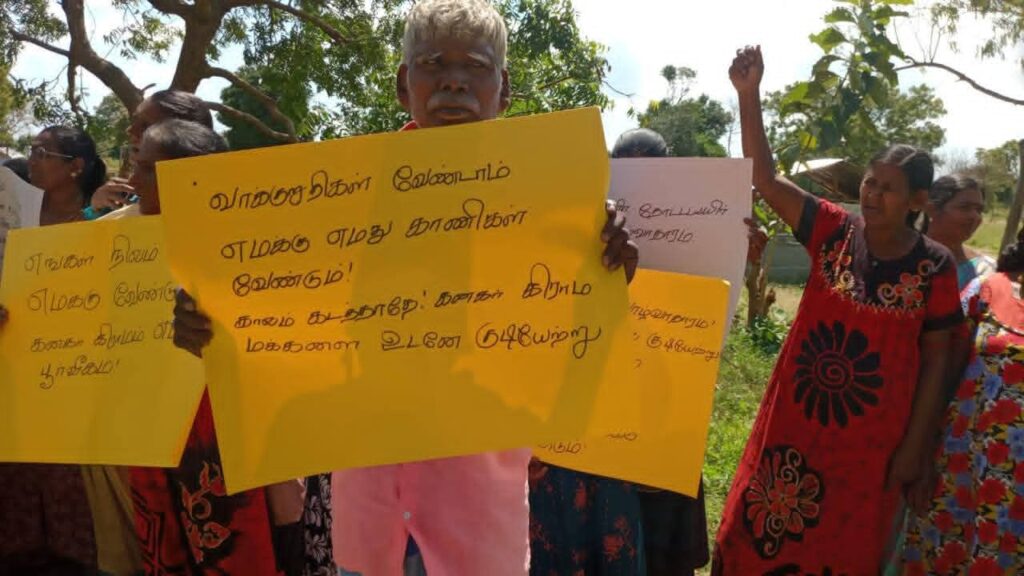 வாக்குறுதிகள் வேண்டாம்
எமக்கு எமது காணிகள்
வேண்டும்!
காலம் கடத்தாதே! கனகர் கிராம
மக்களை உடனே குடியேற்று
எங்கள் நிலம்
எமக்கு வேண்டு
கனகர் கிராமம் எ
பூர்வீகம்!
வாதாரம்
குடியேற்று